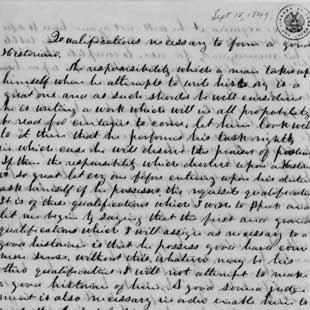 Sept 15, 1849.
Qualifications necessary to form a good
Historian.
The responsibility which a man takes upon
himself when he attempts to write history is a
great one and as such should be well considered
he is writing a work which will in all probability
be read for centuries to come, let him look well
to it then that he performs his task rightly
in which case he will deserve the praises of
If then the responsibility which devolves upon a Historian
is so great let every one before entering upon his duties
ask himself if he possesses the requisite qualifications
It is of these qualifications which I wish to speak and
let me begin by saying that the first and grand
qualifications which I will assign as necessary to a
good historian is that he possess good hard com
mon sense, without this, whatever may be his
other qualifications I will not attempt to make
a good historian of him. A good sound judg
ment is also necessary in order to enable him to